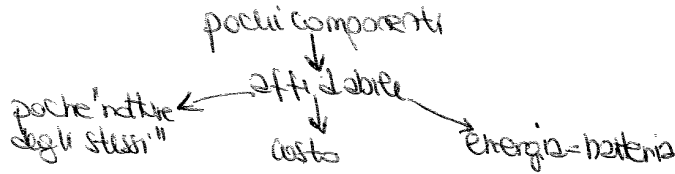 pochi componenti
affidabile
poche "nature
degli stessi"
costo
energia = batteria